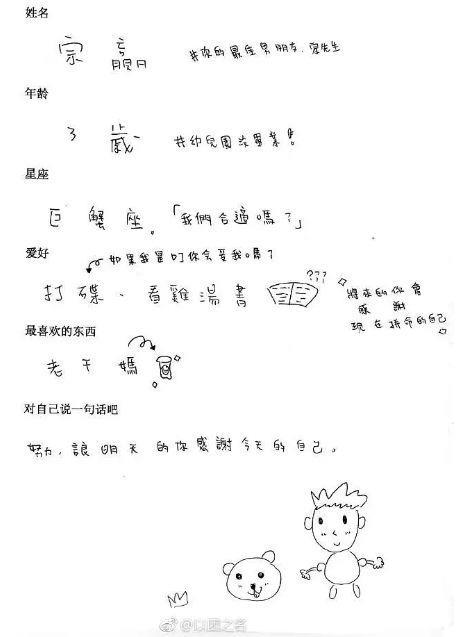 姓名
宗贏 #你的最佳男朋友 宗先生
年龄
3歲 #幼兒園沒畢業生
星座
巨蟹座。「我們合適嗎?」
爱好
如果我是叮你會愛我嗎?
打碟、看雞湯書 ???
將來的你會
感謝
現在拚命的自己
最喜欢的东西
老干媽
对自己说一句话吧
努力,讓明天的你感謝今天的自己。
@以團之名